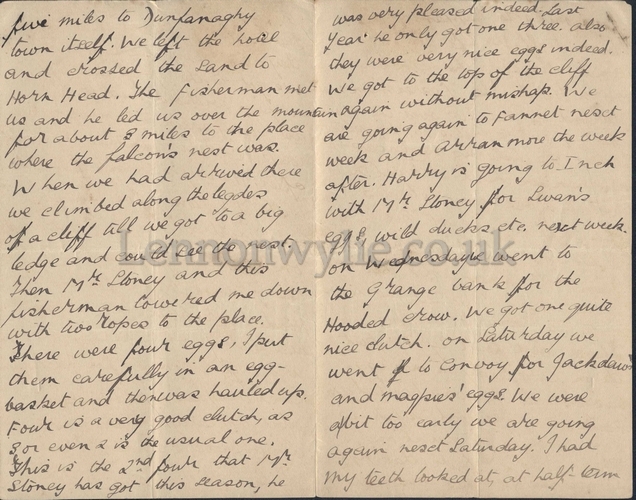 five miles to Dunfanaghy
town itself. We left the hotel
and crossed the sand to
Horn Head. The Fisherman met
us and he led us over the mountain
for about 3 miles to the place
where the falcon's nest was.
When we had arrived there
we climbed along the legdes
of a cliff till we got to a big
ledge and could see the nest.
Then Mr. Stoney and this
fisherman lowered me down
with two ropes to the place.
There were four eggs, I put
them carefully in an egg-
basket and then was hauled up.
Four is a very good clutch, as
3 or even 2 is the usual one.
This is the 2nd four that Mr.
Stoney has got this season, he
was very pleased indeed. Last
Year he only got one three. also
they were very nice eggs indeed.
We got to the top of the cliff
again without mishap. We
are going again to Fannet next
week and Arranmore the week
after. Harry is going to Inch
with Mr. Stoney for Swan's
eggs, wild ducks, etc. next week.
on Wednesday we went to
the Grange bank for the
Hooded crow. We got one quite
nice clutch. on Saturday we
went to Convoy for Jackdaws
and magpies' eggs. We were
a bit too early we are going
again next Saturday. I had
my teeth looked at, at half-term
Lennonwylie.co.uk